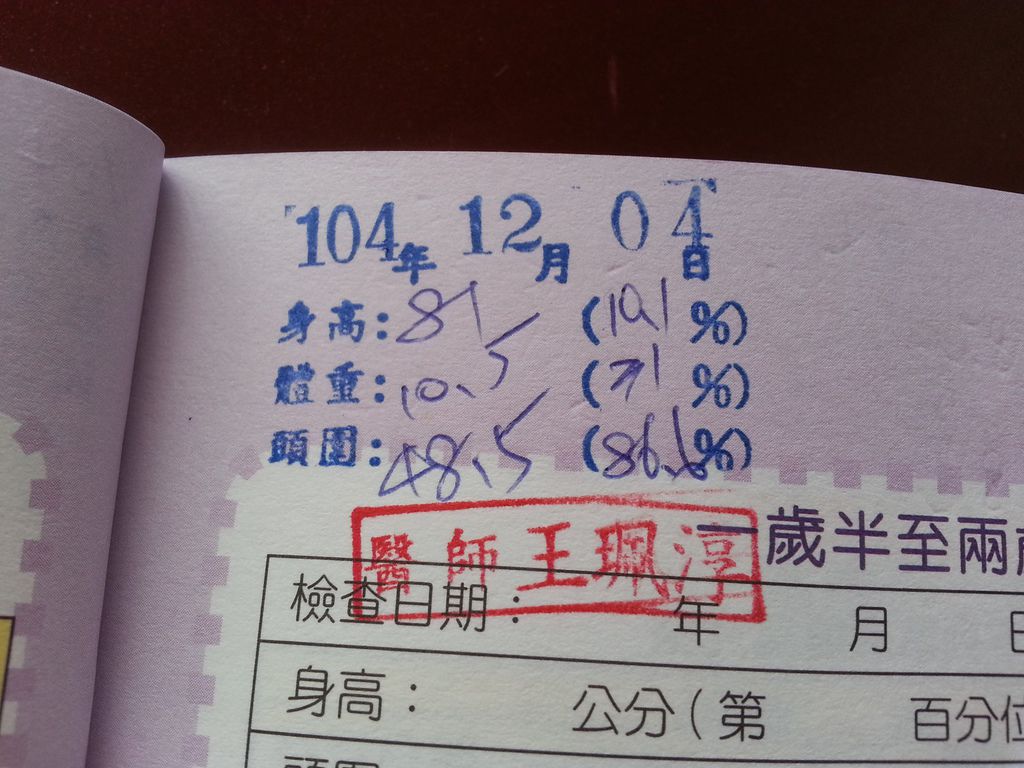 104年 12月 04日
身高: 81 (10.1%)
體重: 10.5 (71%)
頭圍: 48.5 (86.6%)
醫師王珮淳
一歲半至兩
檢查日期： 年 月
身高： 公分(第 百分位
頭圍